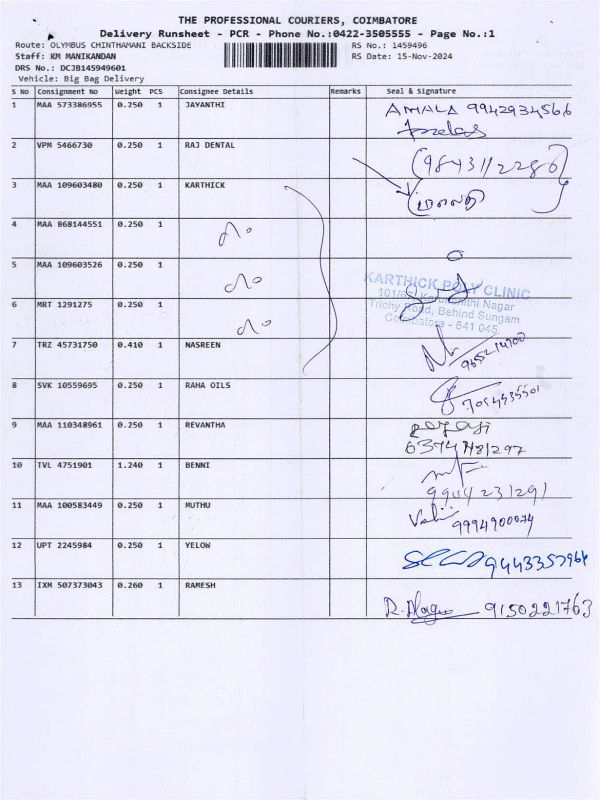 THE PROFESSIONAL COURIERS, COIMBATORE
Delivery Runsheet - PCR - Phone No.:0422-3505555 - Page No.:1
Route: OLYMBUS CHINTHAMANI BACKSIDE RS No.: 1459496
Staff: KM MANIKANDAN RS Date: 15-Nov-2024
DRS No.: DCJB145949601
Vehicle: Big Bag Delivery
S No Consignment No Weight PCS Consignee Details Remarks Seal & Signature
1 MAA 573386955 0.250 1 JAYANTHI AMALA 9942934566
2 VPM 5466730 0.250 1 RAJ DENTAL
3 MAA 109603480 0.250 1 KARTHICK
4 MAA 868144551 0.250 1
5 MAA 109603526 0.250 1
KARTHICK POLY CLINIC
Nagar
Trichy Road, Behind Sungam
Coimbatore - 641 045.
6 MRT 1291275 0.250 1
7 TRZ 45731750 0.410 1 NASREEN
8 SVK 10559695 0.250 1 RAHA OILS
9 MAA 110348961 0.250 1 REVANTHA
10 TVL 4751901 1.240 1 BENNI
9904231291
11 MAA 100583449 0.250 1 MUTHU
12 UPT 2245984 0.250 1 YELOW
13 IXM 507373043 0.260 1 RAMESH
9150221763